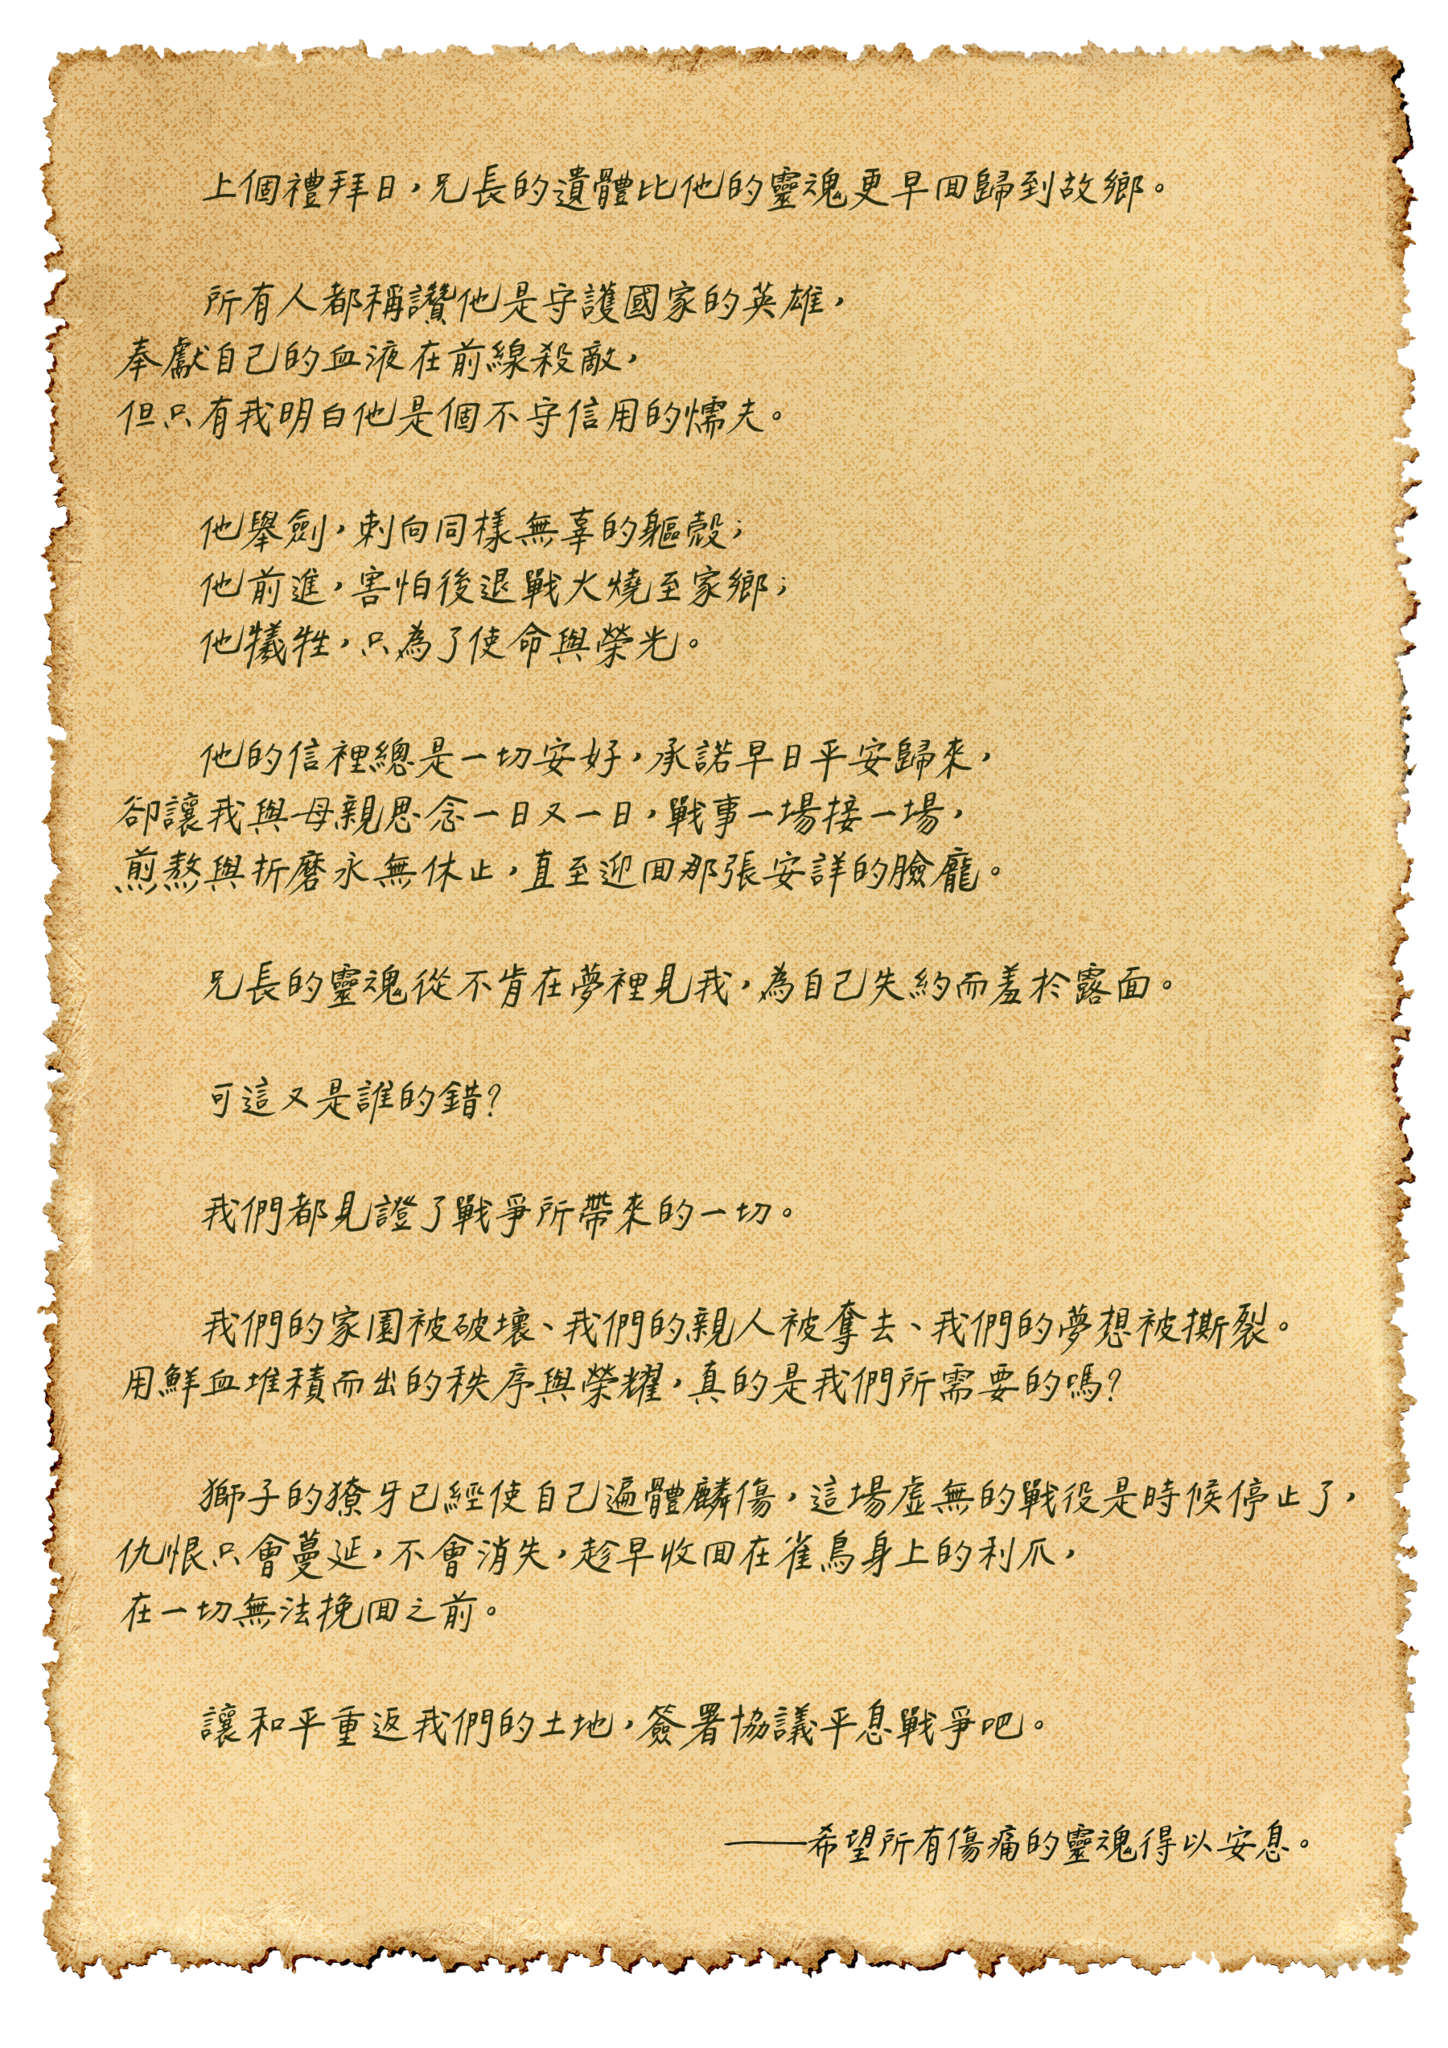 上個禮拜日，兄長的遺體比他的靈魂更早回歸到故鄉。
所有人都稱讚他是守護國家的英雄，
奉獻自己的血液在前線殺敵，
但只有我明白他是個不守信用的懦夫。
他舉劍，刺向同樣無辜的軀殼；
他前進，害怕後退戰火燒至家鄉；
他犧牲，只為了使命與榮光。
他的信裡總是一切安好，承諾早日平安歸來，
卻讓我與母親思念一日又一日，戰事一場接一場，
煎熬與折磨永無休止，直至迎回那張安詳的臉龐。
兄長的靈魂從不肯在夢裡見我，為自己失約而羞於露面。
可這又是誰的錯？
我們都見證了戰爭所帶來的一切。
我們的家園被破壞、我們的親人被奪去、我們的夢想被撕裂。
用鮮血堆積而出的秩序與榮耀，真的是我們所需要的嗎？
獅子的獠牙已經使自己遍體麟傷，這場虛無的戰役是時候停止了，
仇恨只會蔓延，不會消失，趁早收回在雀鳥身上的利爪，
在一切無法挽回之前。
讓和平重返我們的土地，簽署協議平息戰爭吧。
——希望所有傷痛的靈魂得以安息。